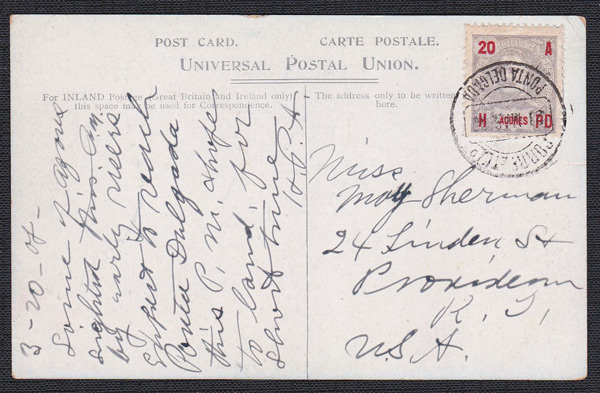 POST CARD. CARTE POSTALE.
UNIVERSAL POSTAL UNION.
For INLAND Postage (Great Britain and Ireland only)
this space may be used for Correspondence.
The address only to be written
here.
20 A
H AÇORES PD
PONTA DELGADA
3-20-08-
Some of Azores
sighted this a.m.
by early risers
Expect to reach
Ponta Delgada
this P.M. & hope
to land for
short time
H.P.A.
Miss
May Sherman
24 Linden St
Providence
R.I,
U.S.A.